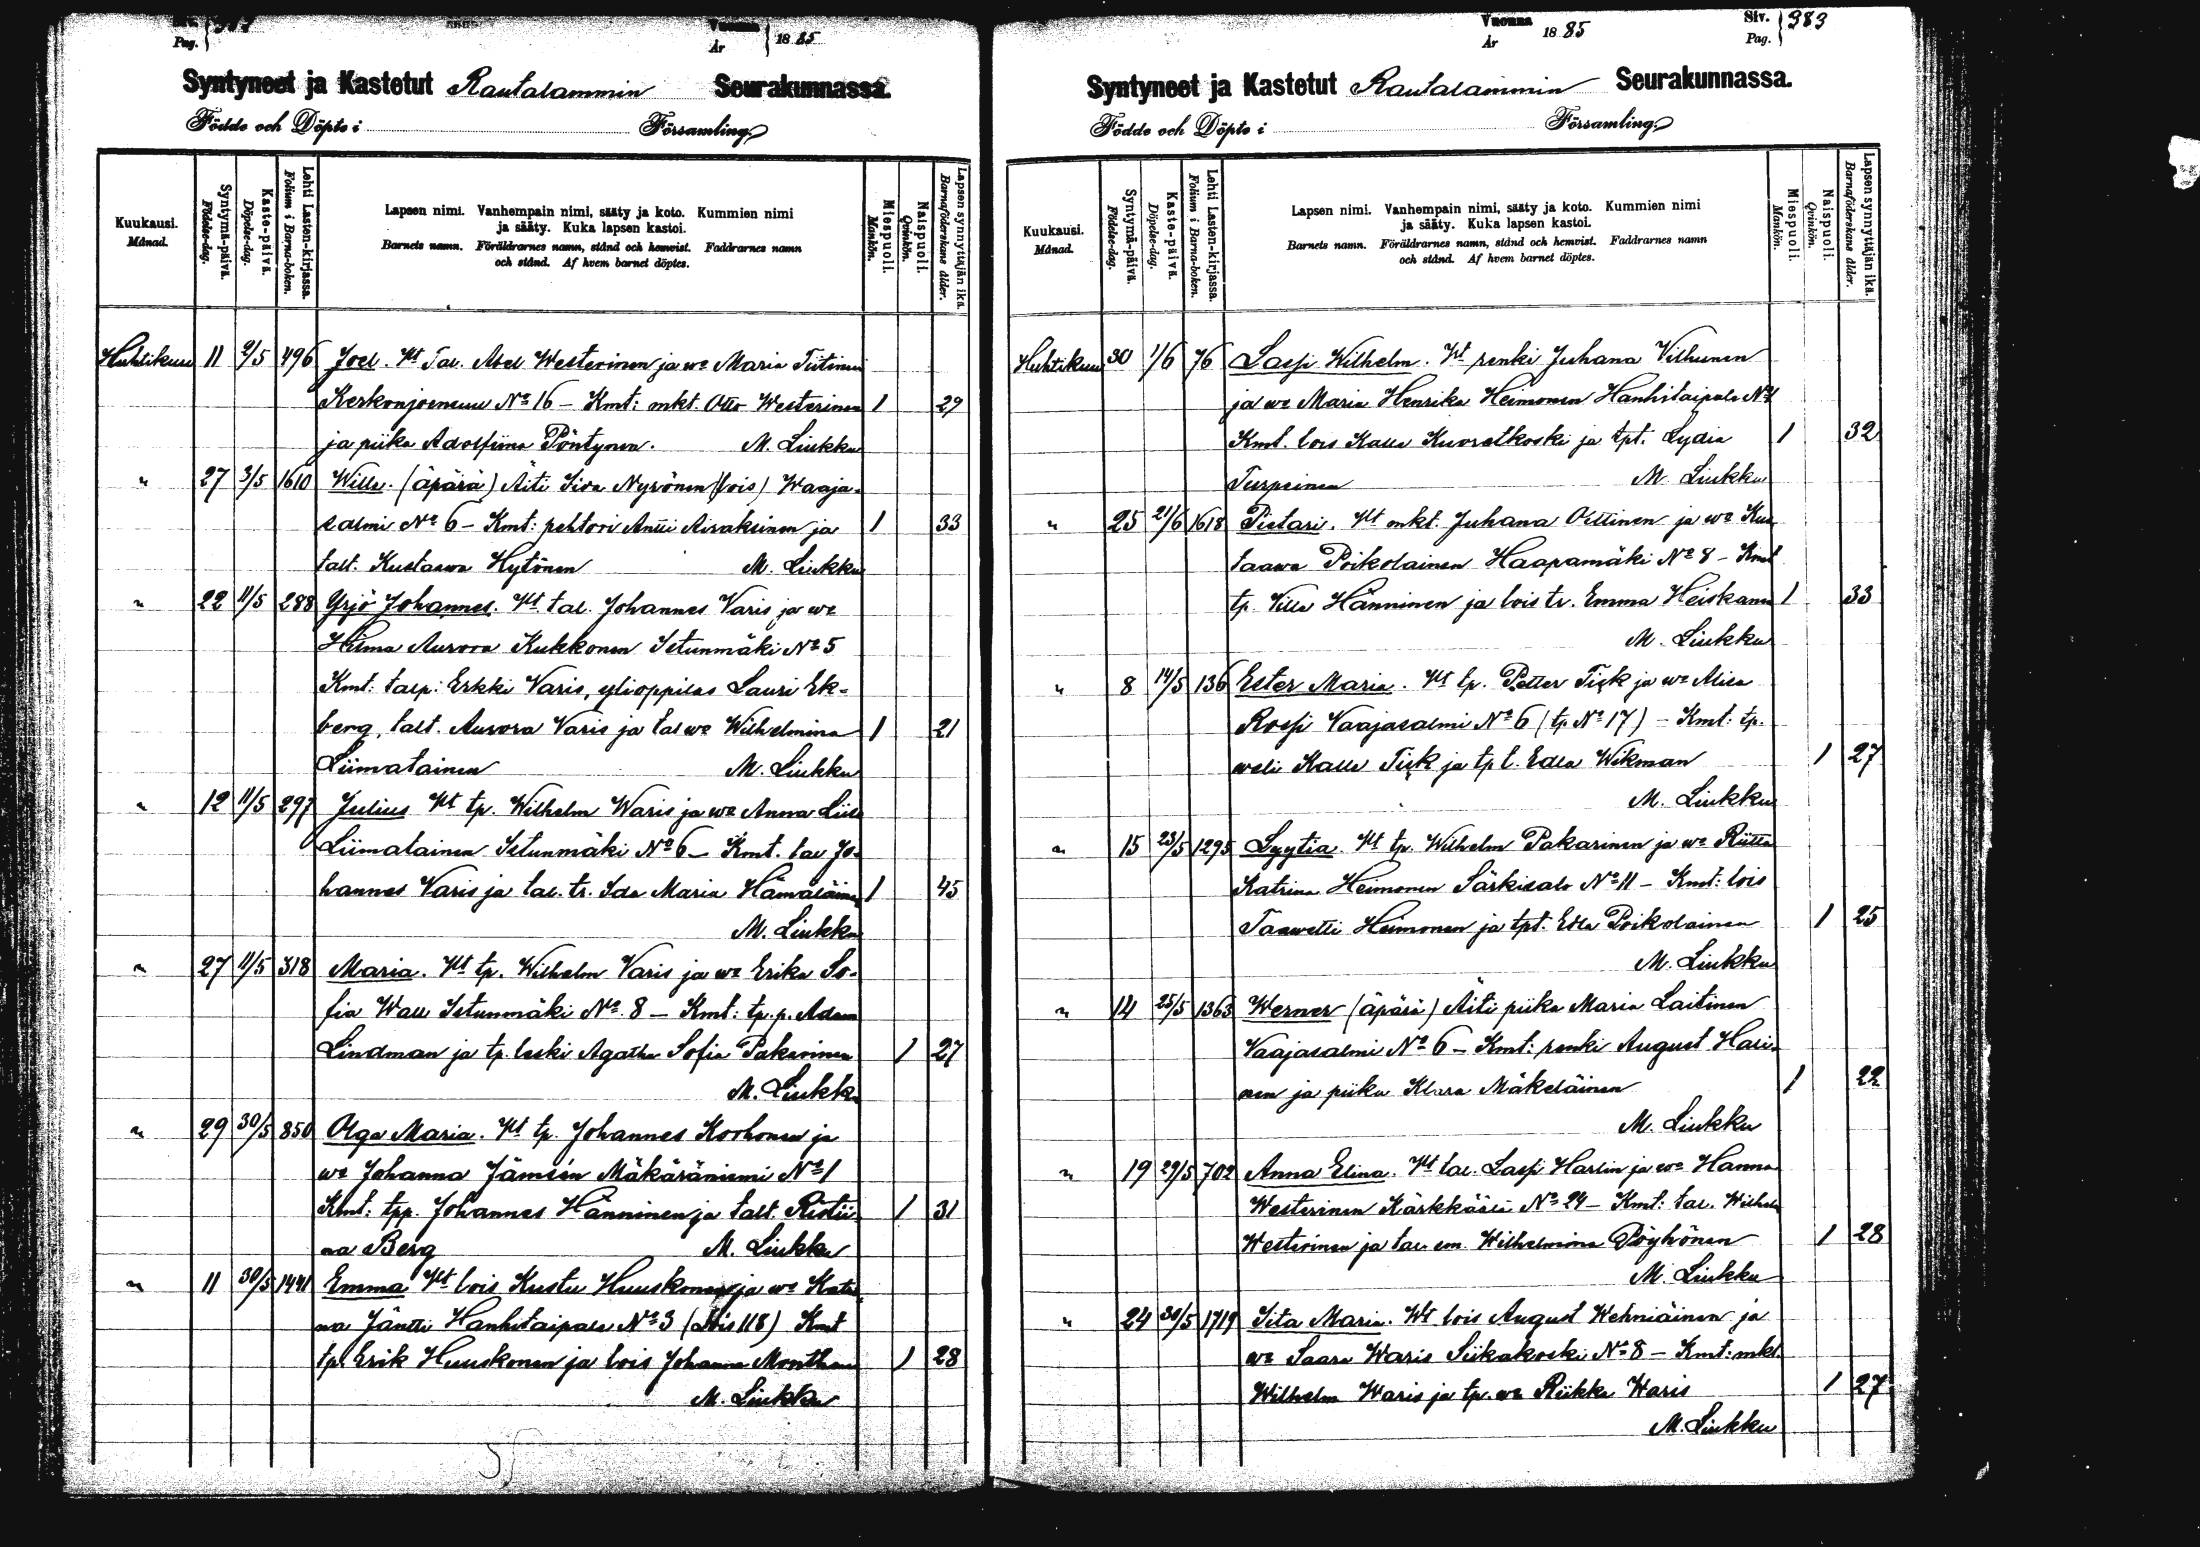 Pag.
Vuonna
År
1885
Syntyneet ja Kastetut Rautalammin Seurakunnassa.
Födde och Döpte i Församling
Kuukausi.
Månad.
Syntymä-päivä.
Födelse-dag.
Kaste-päivä.
Döpelse-dag.
Lehti Lasten-kirjassa.
Folium i Barna-boken.
Lapsen nimi. Vanhempain nimi, sääty ja koto. Kummien nimi
ja sääty. Kuka lapsen kastoi.
Barnets namn. Föräldrarnes namn, stånd och hemvist. Faddrarnes namn
och stånd. Af hvem barnet döptes.
Miespuoli.
Mankön.
Naispuoli.
Qvinkön.
Lapsen synnyttäjän ikä.
Barnaföderskans ålder.
Huhtikuu 11 9/5 496 Joel. Vht Tal. Abel Westerinen ja wo Maria Tiitinen
Kerkonjoensuu No 16 – Kmt: mkt. Otto Westerinen 1 29
ja piika Adolfiina Pöntynen. M. Liukku
" 27 3/5 1610 Wille. (äpärä) Äiti Iida Nyrönen (lois) Waaja-
salmi No 6 – Kmt: pehtori Antti Airaksinen ja 1 33
talt. Kustaawa Hytönen M. Liukku
" 22 11/5 288 Yrjö Johannes. Vht tal. Johannes Varis ja wo
Hilma Aurora Kukkonen Istunmäki No 5
Kmt: talp: Erkki Varis, ylioppilas Lauri Ek-
berg, talt. Aurora Varis ja tal wo Wilhelmina 1 21
Liimatainen M. Liukku
" 12 11/5 297 Julius Vht tp. Wilhelm Waris ja wo Anna Liisa
Liimatainen Istunmäki No 6 – Kmt. tal Jo-
hannes Varis ja tal. tr. Ida Maria Hämäläinen 1 45
M. Liukku
" 27 11/5 318 Maria. Vht tp. Wilhelm Varis ja wo Erika So-
fia Wall Istunmäki No 8 – Kmt: tp. p. Adam
Lindman ja tp. leski Agatha Sofia Pakarinen 1 27
M. Liukku
" 29 30/5 850 Olga Maria. Vht tp. Johannes Korhonen ja
wo Johanna Jämsén Mäkäräniemi No 1
Kmt: tpp. Johannes Hänninen ja talt. Ristii- 1 31
na Berg M. Liukku
" 11 30/5 1441 Emma Vht lois Kustu Huuskonen ja wo Katri-
na Jäntti Hanhitaipale No 3 (Lois 118) Kmt
tp. Erik Huuskonen ja lois Johanna 1 28
M. Liukku
Vuonna
År
1885
Siv.
Pag.
383
Syntyneet ja Kastetut Rautalammin Seurakunnassa.
Födde och Döpte i Församling
Kuukausi.
Månad.
Syntymä-päivä.
Födelse-dag.
Kaste-päivä.
Döpelse-dag.
Lehti Lasten-kirjassa.
Folium i Barna-boken.
Lapsen nimi. Vanhempain nimi, sääty ja koto. Kummien nimi
ja sääty. Kuka lapsen kastoi.
Barnets namn. Föräldrarnes namn, stånd och hemvist. Faddrarnes namn
och stånd. Af hvem barnet döptes.
Miespuoli.
Mankön.
Naispuoli.
Qvinkön.
Lapsen synnyttäjän ikä.
Barnaföderskans ålder.
Huhtikuu 30 1/6 76 Lassi Wilhelm. Vht renki Juhana Vilhunen
ja wo Maria Henrika Heimonen Hanhitaipale
Kmt. lois Kalle Kuoretkoski ja tpt. Lydia 1 32
Turpeinen M. Liukku
" 25 21/6 1618 Pietari. Vht mkt. Juhana Oittinen ja wo Kus
taawa Poikolainen Haapamäki No 8 – Kmt
tp. Ville Hänninen ja lois tr. Emma Heiskanen 1 33
M. Liukku
" 8 14/5 136 Ester Maria. Vht tp. Petter Tick ja wo Alisa
Rossi Vaajasalmi No 6 (tp No 17) – Kmt: tp.
weli Kalle Tick ja tp t. Edla Wikman 1 27
M. Liukku
" 15 23/5 1295 Lyytia Vht tp. Wilhelm Pakarinen ja wo Riitta
Katrina Heimonen Särkisalo No 11 – Kmt: lois
Taawetti Heimonen ja tpt. Edla Poikolainen 1 25
M. Liukku
" 14 25/5 1363 Werner (äpärä) Äiti piika Maria Laitinen
Vaajasalmi No 6 – Kmt: renki August Hari-
nen ja piika Klara Mäkeläinen 1 22
M. Liukku
" 19 29/5 702 Anna Elina. Vht tal. Lassi Harlin ja wo Hanna
Westerinen Kärkkääi No 24 – Kmt: tal. Wilhelm
Westerinen ja tal. em. Wilhelmina Pöyhönen 1 28
M. Liukku
" 24 30/5 1719 Iita Maria. Vht lois August Wehniäinen ja
wo Saara Waris Siikakoski No 8 – Kmt: mkt.
Wilhelm Waris ja tp. wo Riikka Waris 1 27
M. Liukku